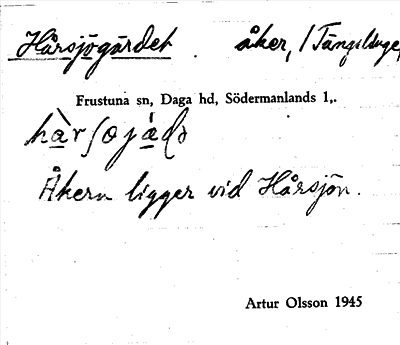 Hårsjögärdet. åker, / Tängsläge,
Frustuna sn, Daga hd, Södermanlands l,.
Åkern ligger vid Hårsjön.
Artur Olsson 1945